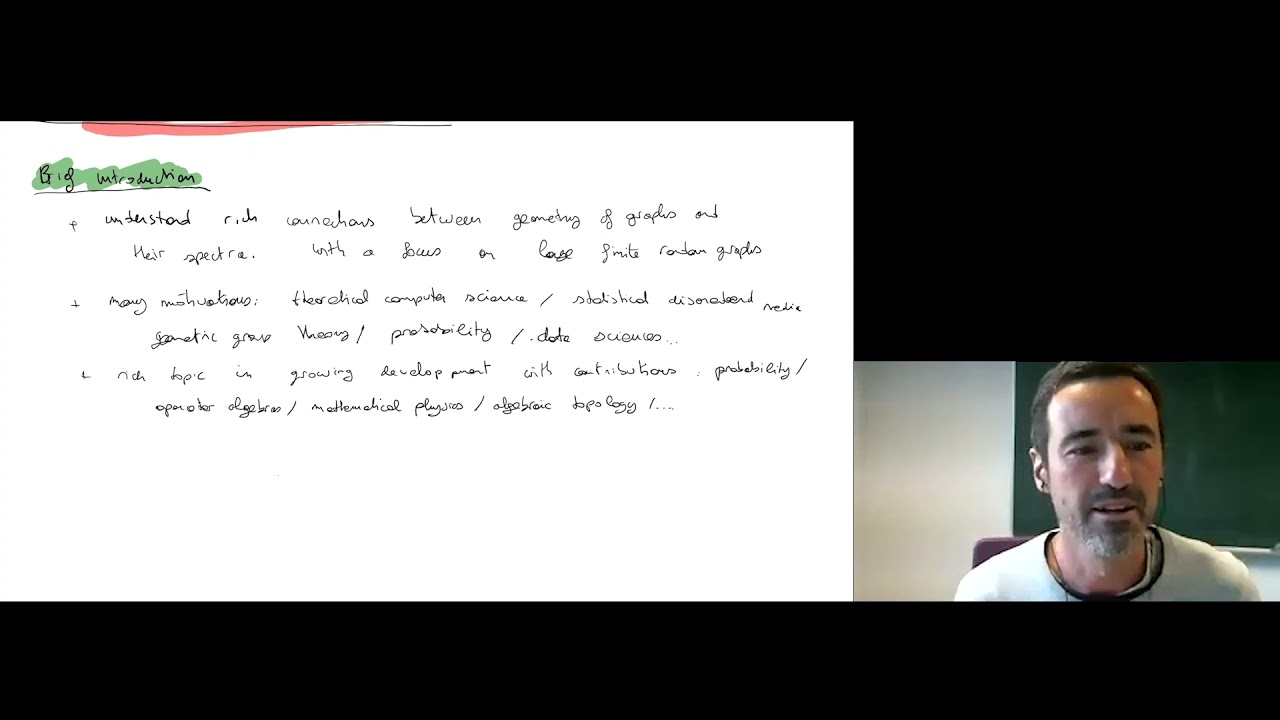 Brief introduction
+ understand rich connections between geometry of graphs and
their spectra. with a focus on large finite random graphs
+ many motivations: theoretical computer science / statistical disordered media
geometric group theory / probability / data sciences...
+ rich topic in growing development with contributions : probability /
operator algebras / mathematical physics / algebraic topology / ....